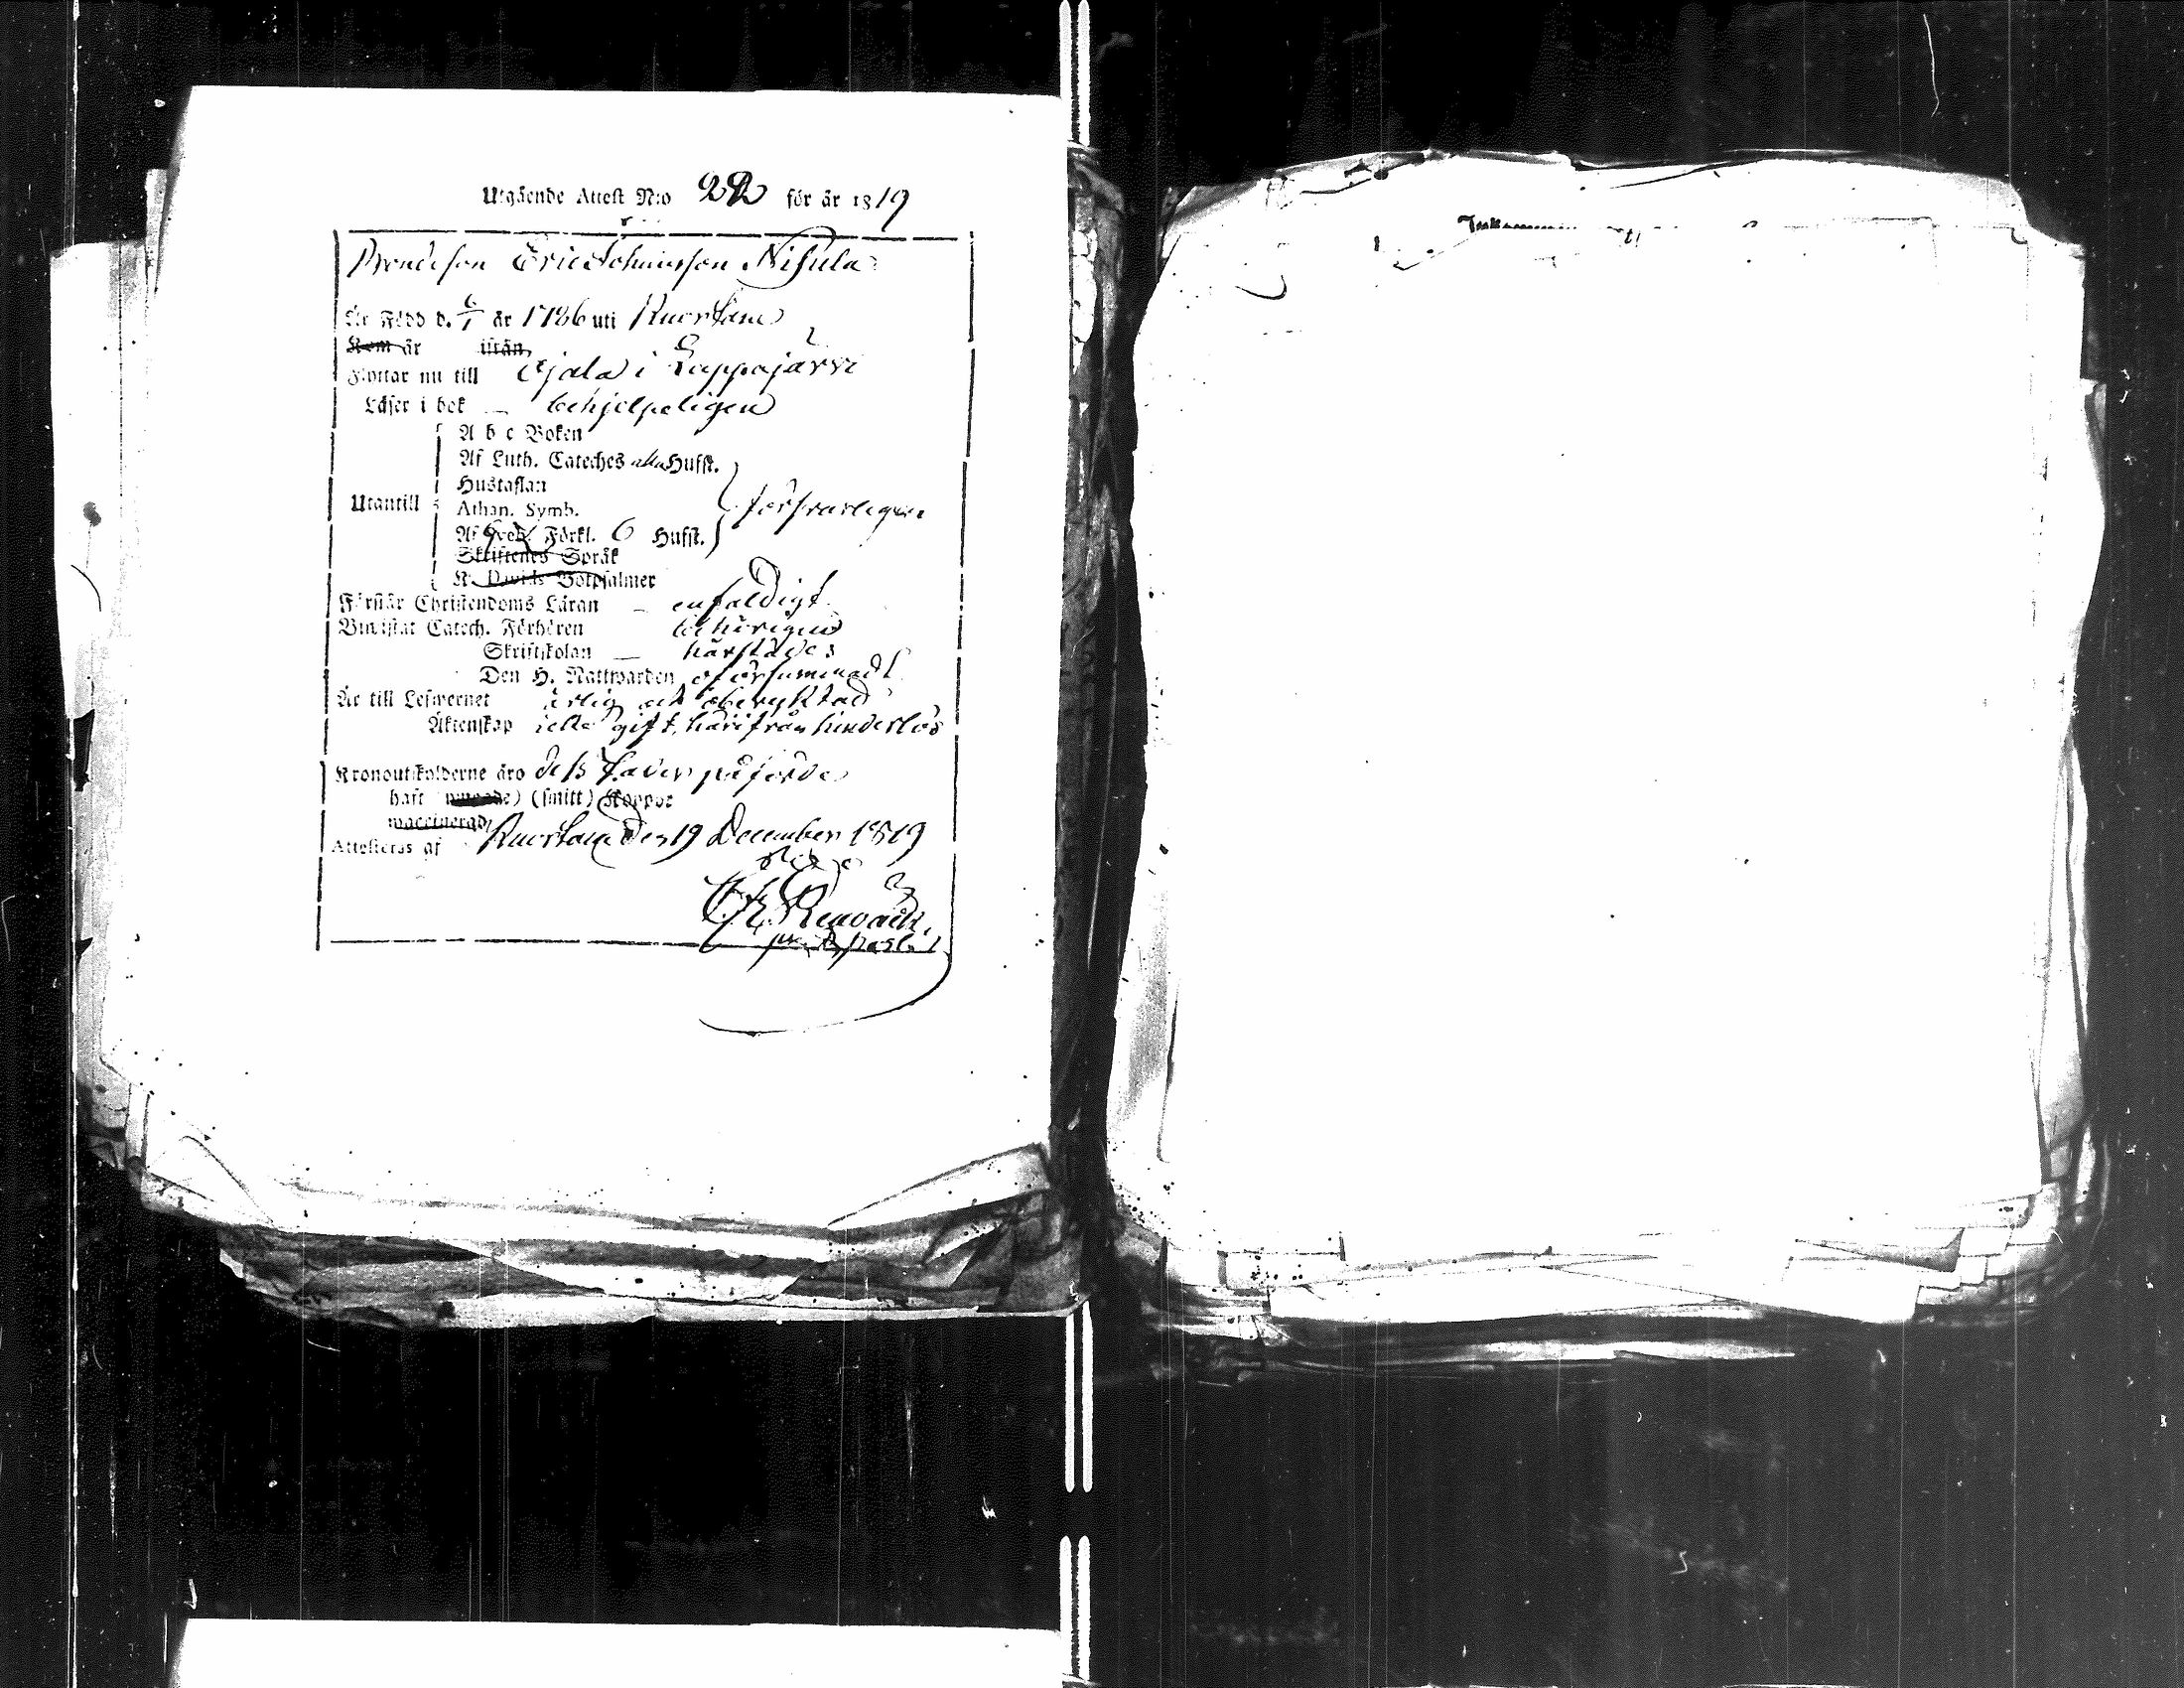 Utgående Attest N:o 22 för år 1819
Bondeson Eric Johansson Nisula
Är Född d. 6/1 år 1786 uti Kuortane
Kom år ifrån
Flyttar nu till i Lappajärvi
Läser i bok — behjelpeligen
A b c Boken
Af Luth. Cateches alla Hufst.
Hustaflan
Utantill Athan. Symb. försvarligen
Af Sveb. Förkl. 6 Hufst.
Skriftenes Språk
K. Davids Botpsalmer
Förstår Christendoms Läran — enfaldigt
Biwistat Catech. Förhören behörigen
Skriftskolan — härstädes
Den H. Nattwarden oförsummadt
Är till Lefwernet ärlig och oberyktad
Äktenskap icke gift, härifrån hinderlös
Kronoutskylderne äro dess Fader påförde
haft (smitt) Koppor
waccinerad
Attesteras af Kuortane den 19 December 1819